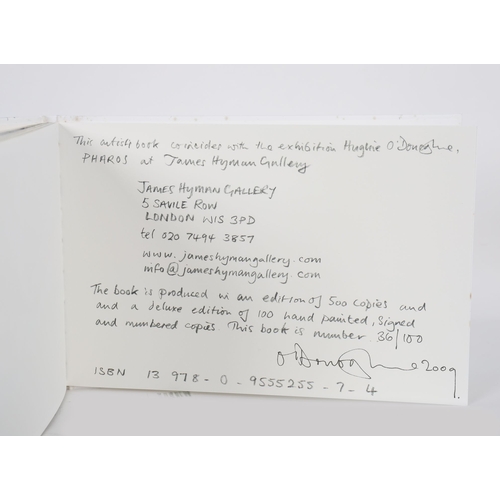 This artist book coincides with the exhibition Hughie O'Donoghue,
PHAROS at James Hyman Gallery
JAMES HYMAN GALLERY
5 SAVILE ROW
LONDON W1S 3PD
tel 020 7494 3857
www.jameshymangallery.com
info@jameshymangallery.com
The book is produced in an edition of 500 copies and
and a deluxe edition of 100 hand painted, signed
and numbered copies This book is number 36/100
O'Donoghue 2009.
ISBN 13 978-0-9555255-7-4